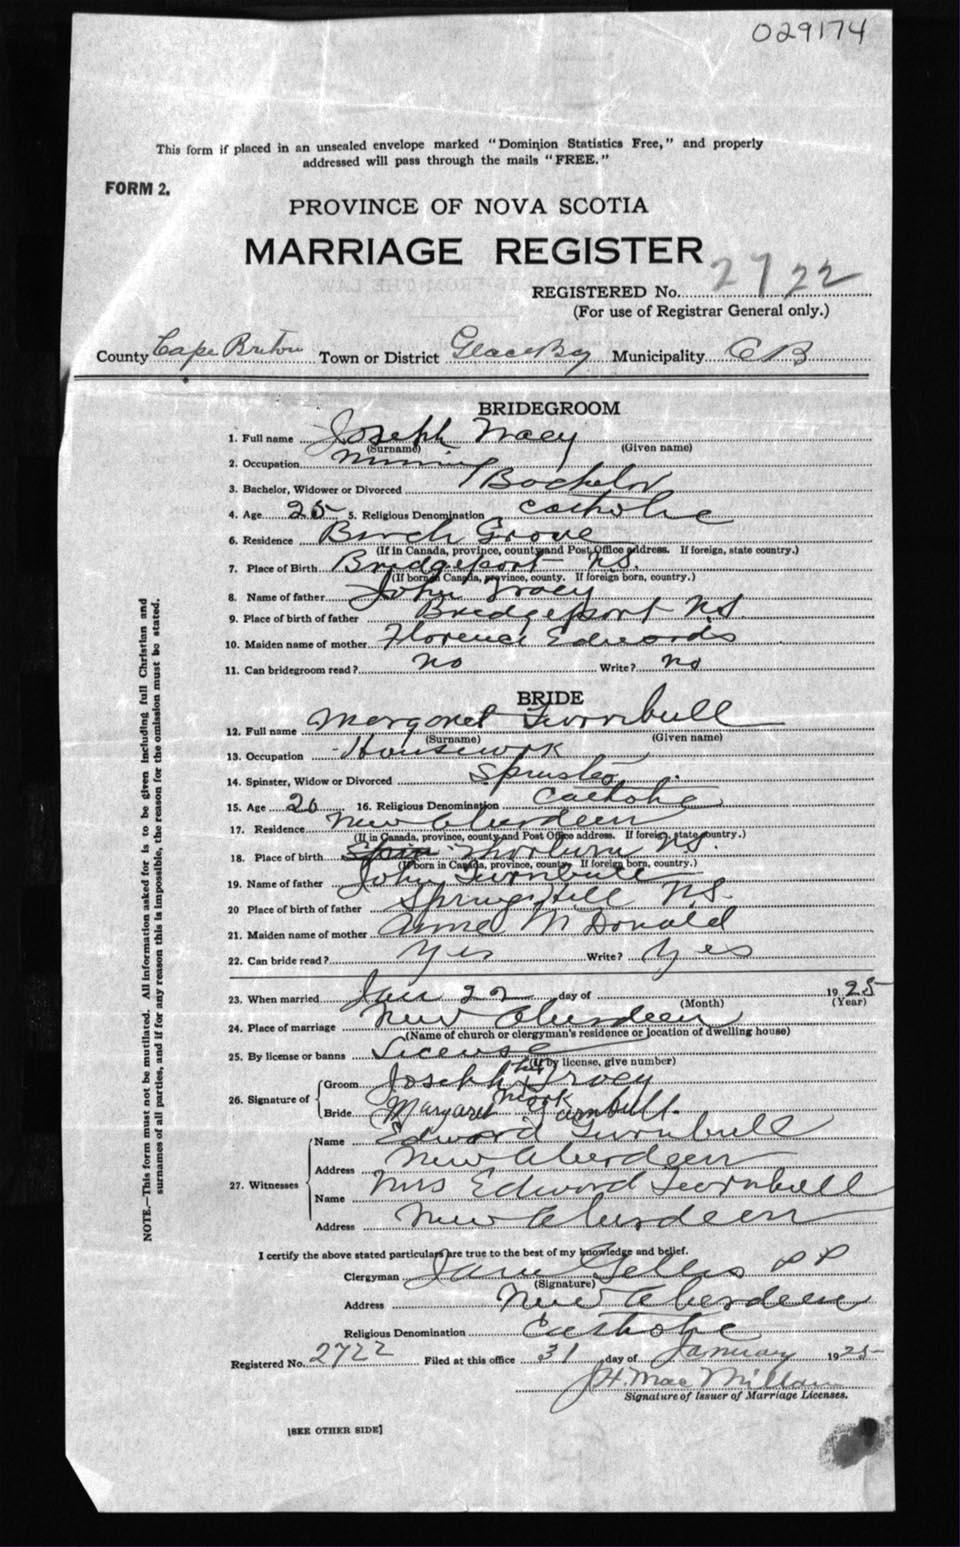 029174
This form if placed in an unsealed envelope marked "Dominion Statistics Free," and properly
addressed will pass through the mails "FREE."
FORM 2.
PROVINCE OF NOVA SCOTIA
MARRIAGE REGISTER
REGISTERED No. 2722
(For use of Registrar General only.)
County Cape Breton Town or District Glace Bay Municipality C B
BRIDEGROOM
1. Full name Joseph Tracy
(Surname) (Given name)
2. Occupation Mining
3. Bachelor, Widower or Divorced Bachelor
4. Age 25 5. Religious Denomination Catholic
6. Residence Birch Grove
(If in Canada, province, county and Post Office address. If foreign, state country.)
7. Place of Birth Bridgeport N.S.
(If born in Canada, province, county. If foreign born, country.)
8. Name of father John Tracy
9. Place of birth of father Bridgeport N S
10. Maiden name of mother Florence Edwards
11. Can bridegroom read? No Write? No
BRIDE
12. Full name Margaret Turnbull
(Surname) (Given name)
13. Occupation Housework
14. Spinster, Widow or Divorced Spinster
15. Age 20 16. Religious Denomination Catholic
17. Residence New Aberdeen
(If in Canada, province, county and Post Office address. If foreign, state country.)
18. Place of birth Thorburn N.S.
(If born in Canada, province, county. If foreign born, country.)
19. Name of father John Turnbull
20 Place of birth of father Spring Hill N.S.
21. Maiden name of mother Annie McDonald
22. Can bride read? Yes Write? Yes
23. When married Jan 22 day of 1925
(Month) (Year)
24. Place of marriage New Aberdeen
(Name of church or clergyman's residence or location of dwelling house)
25. By license or banns License
(If by license, give number)
26. Signature of
Groom Joseph his Tracy
mark
Bride Margaret Turnbull.
27. Witnesses
Name Edward Turnbull
Address New Aberdeen
Name Mrs Edward Turnbull
Address New Aberdeen
I certify the above stated particulars are true to the best of my knowledge and belief.
Clergyman Gillis P P
(Signature)
Address New Aberdeen
Religious Denomination Catholic
Registered No. 2722 Filed at this office 31 day of January 1925
J H. MacMillan
Signature of Issuer of Marriage Licenses.
[SEE OTHER SIDE]
NOTE.—This form must not be mutilated. All information asked for is to be given including full Christian and
surnames of all parties, and if for any reason this is impossible, the reason for the omission must be stated.